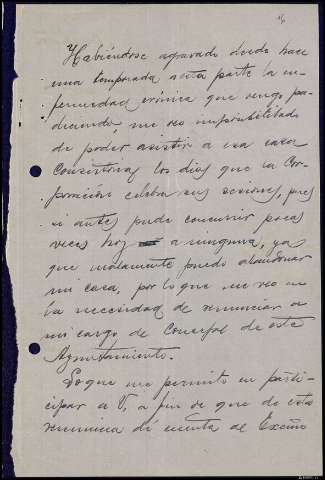 Habiéndose agravado desde hace
una temporada a esta parte la en-
fermedad crónica que vengo pa-
deciendo, me veo imposibilitado
de poder asistir a esa casa
Consistorial los dias que la Cor-
poración celebra sus sesiones, pues
si antes pude concurrir pocas
veces hoy a ninguna, ya
que malamente puedo abandonar
mi casa, por lo que me veo en
la necesidad de renunciar a
mi cargo de Concejal de este
Ayuntamiento.
Lo que me permito en partici-
par a V, a fin de que de esta
renuncia dé cuenta al Excmo